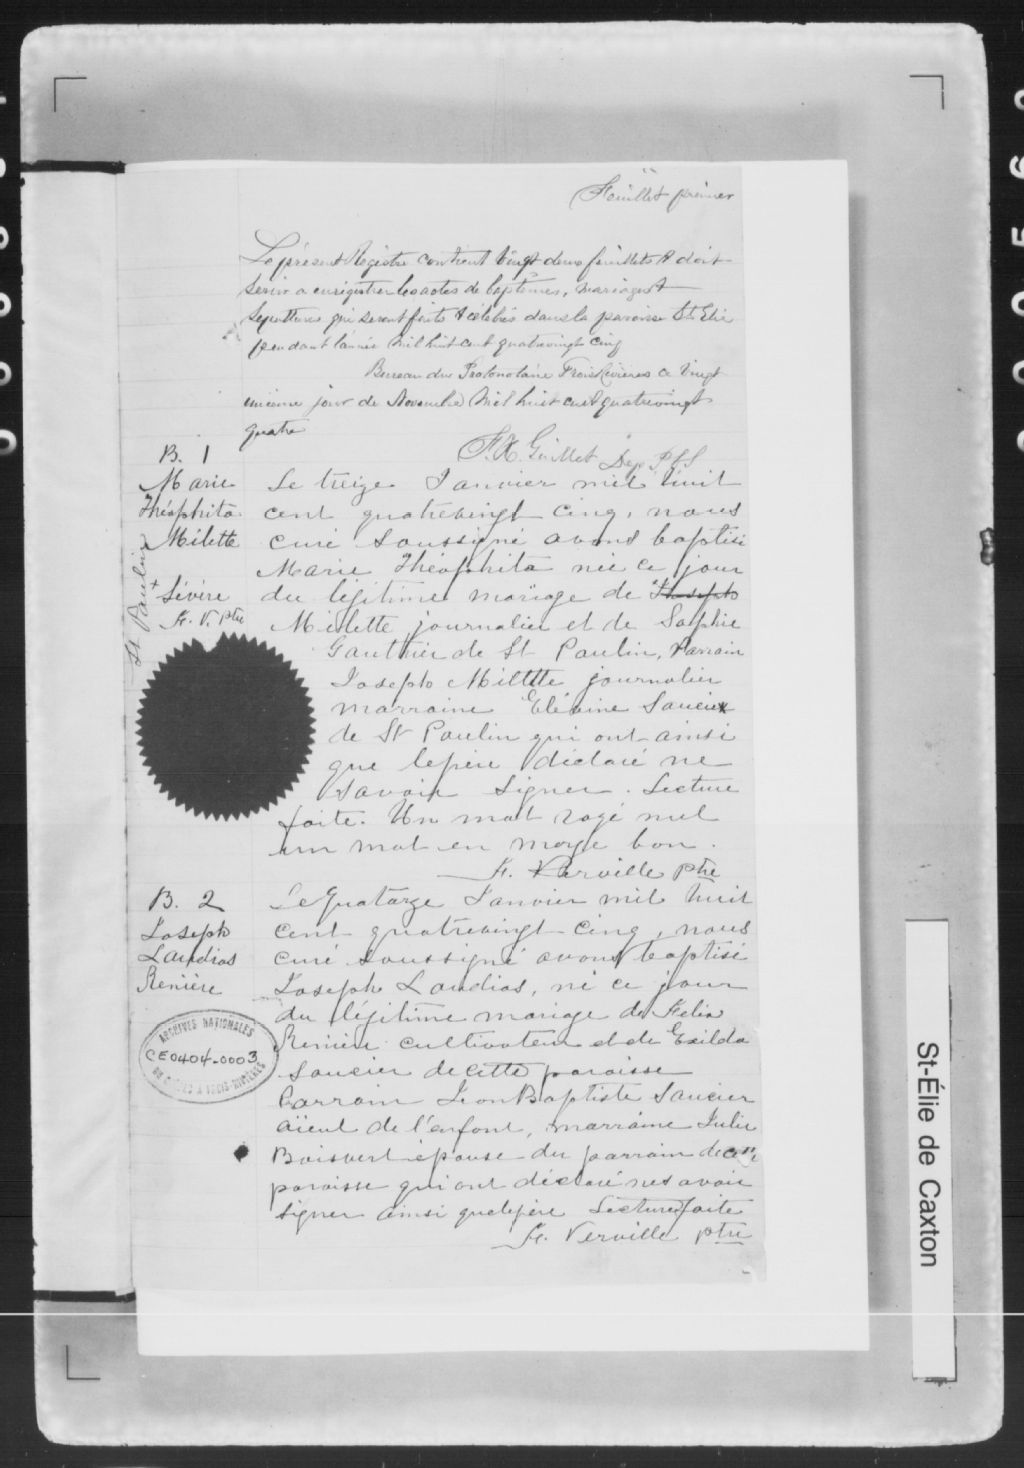 Feuillet premier
Le présent Registre contient vingt deux feuillets & doit
servir a enrégistrer les actes de baptêmes, mariages &
sepultures qui seront faits & célébrés dans la paroisse St Elie
pendant l'année mil huit cent quatrevingt cinq
Bureau du Protonotaire Trois Rivières ce vingt
unième jour de Novembre mil huit cent quatrevingt
quatre
F.X. Guillet Dep. P.C.S
B. 1
Marie
Théophita
Milette
St Paulin
+ Sévère
F. V. ptre
Le treize Janvier mil huit
cent quatrevingt cinq, nous
curé soussigné avons baptisé
Marie Théophita née ce jour
du légitime mariage de Joseph
Milette journalier et de Sophie
Gauthier de St Paulin, Parrain
Joseph Milette journalier
marraine Elésine Saucier
de St Paulin qui ont ainsi
que le père déclaré ne
savoir signer. Lecture
faite. Un mot rayé nul
un mot en marge bon.
F. Verville ptre
B. 2
Joseph
Landias
Renière
Le Quatorze Janvier mil huit
cent quatrevingt cinq, nous
curé soussigné avons baptisé
Joseph Landias, né ce jour
du légitime mariage de Felix
Renière cultivateur et de Exilda
Saucier de cette paroisse
Parrain Jean Baptiste Saucier
aïeul de l'enfant, marraine Julie
Boisvert épouse du parrain de cette
paroisse qui ont déclaré ne savoir
signer ainsi que le père Lecture faite
F. Verville ptre
ARCHIVES NATIONALES
CE0404-0003
DU QUÉBEC À TROIS-RIVIÈRES
St-Élie de Caxton